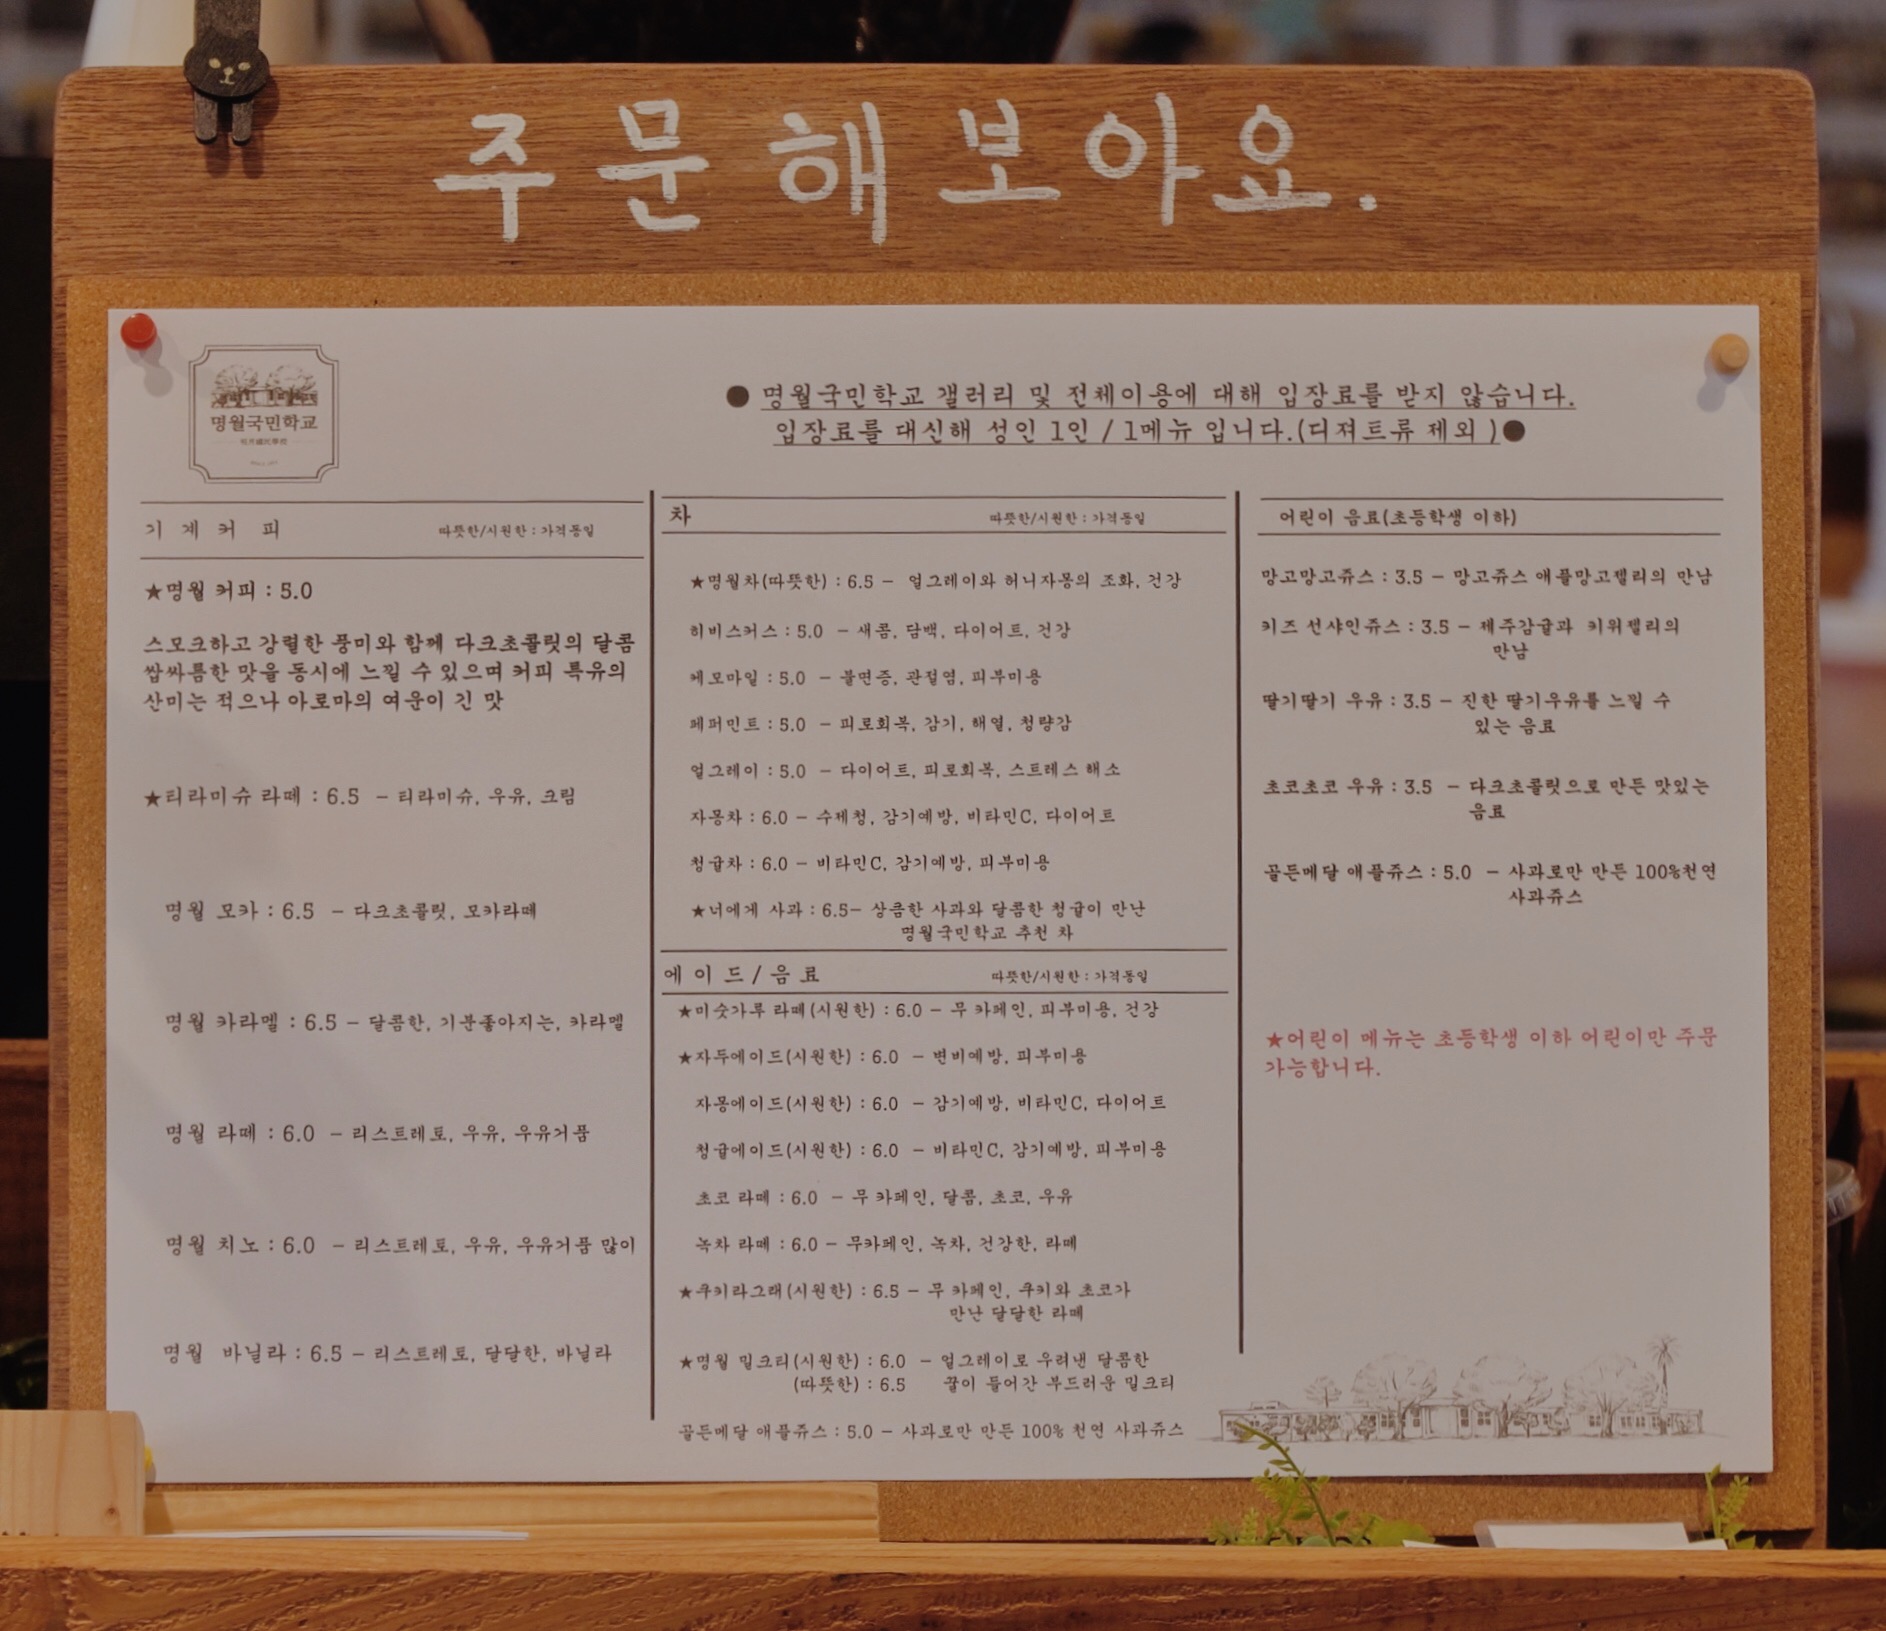 주문해보아요.
명월국민학교
● 명월국민학교 갤러리 및 전체이용에 대해 입장료를 받지 않습니다.
입장료를 대신해 성인 1인 / 1메뉴 입니다.(디져트류 제외 )●
기 계 커 피 따뜻한/시원한 : 가격동일
★명월 커피 : 5.0
스모크하고 강렬한 풍미와 함께 다크초콜릿의 달콤
쌉싸름한 맛을 동시에 느낄 수 있으며 커피 특유의
산미는 적으나 아로마의 여운이 긴 맛
★티라미슈 라떼 : 6.5 – 티라미슈, 우유, 크림
명월 모카 : 6.5 – 다크초콜릿, 모카라떼
명월 카라멜 : 6.5 – 달콤한, 기분좋아지는, 카라멜
명월 라떼 : 6.0 – 리스트레토, 우유, 우유거품
명월 치노 : 6.0 – 리스트레토, 우유, 우유거품 많이
명월 바닐라 : 6.5 – 리스트레토, 달달한, 바닐라
차 따뜻한/시원한 : 가격동일
★명월차(따뜻한) : 6.5 – 얼그레이와 허니자몽의 조화, 건강
히비스커스 : 5.0 – 새콤, 담백, 다이어트, 건강
케모마일 : 5.0 – 불면증, 관절염, 피부미용
페퍼민트 : 5.0 – 피로회복, 감기, 해열, 청량감
얼그레이 : 5.0 – 다이어트, 피로회복, 스트레스 해소
자몽차 : 6.0 – 수제청, 감기예방, 비타민C, 다이어트
청귤차 : 6.0 – 비타민C, 감기예방, 피부미용
★너에게 사과 : 6.5– 상큼한 사과와 달콤한 청귤이 만난
명월국민학교 추천 차
에 이 드 / 음 료 따뜻한/시원한 : 가격동일
★미숫가루 라떼(시원한) : 6.0 – 무 카페인, 피부미용, 건강
★자두에이드(시원한) : 6.0 – 변비예방, 피부미용
자몽에이드(시원한) : 6.0 – 감기예방, 비타민C, 다이어트
청귤에이드(시원한) : 6.0 – 비타민C, 감기예방, 피부미용
초코 라떼 : 6.0 – 무 카페인, 달콤, 초코, 우유
녹차 라떼 : 6.0 – 무카페인, 녹차, 건강한, 라떼
★쿠키라그래(시원한) : 6.5 – 무 카페인, 쿠키와 초코가
만난 달달한 라떼
★명월 밀크티(시원한) : 6.0 – 얼그레이로 우려낸 달콤한
(따뜻한) : 6.5 꿀이 들어간 부드러운 밀크티
골든메달 애플쥬스 : 5.0 – 사과로만 만든 100% 천연 사과쥬스
어린이 음료(초등학생 이하)
망고망고쥬스 : 3.5 – 망고쥬스 애플망고젤리의 만남
키즈 선샤인쥬스 : 3.5 – 제주감귤과 키위젤리의
만남
딸기딸기 우유 : 3.5 – 진한 딸기우유를 느낄 수
있는 음료
초코초코 우유 : 3.5 – 다크초콜릿으로 만든 맛있는
음료
골든메달 애플쥬스 : 5.0 – 사과로만 만든 100%천연
사과쥬스
★어린이 메뉴는 초등학생 이하 어린이만 주문
가능합니다.